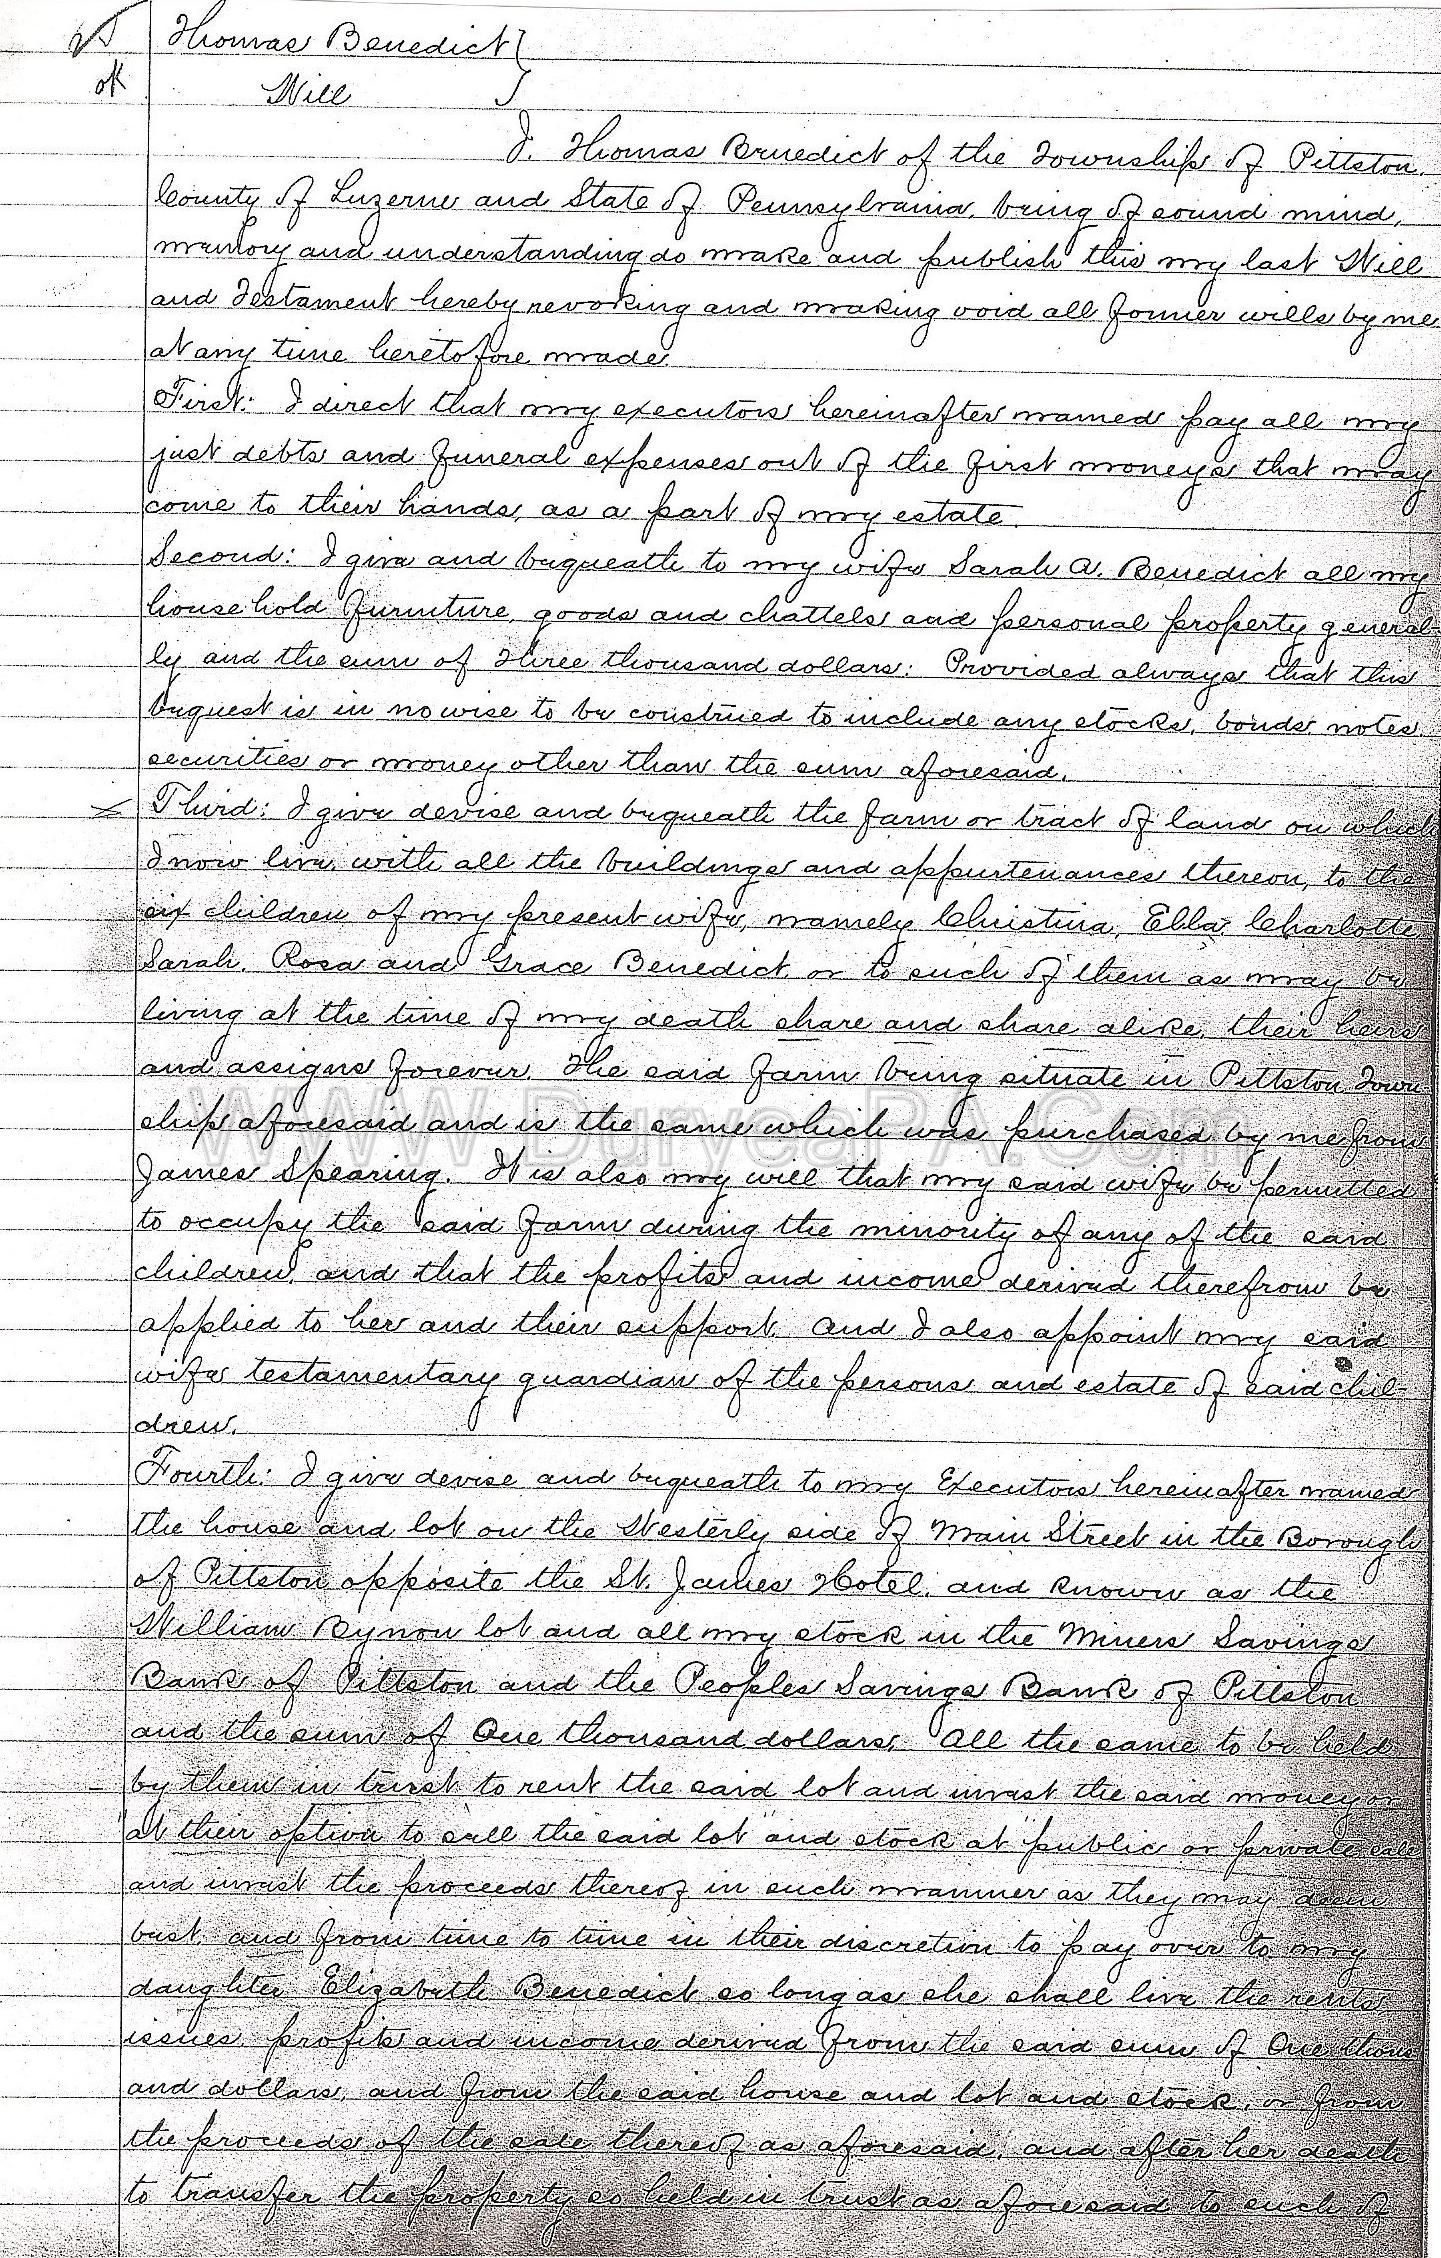 Thomas Benedict }
ok
Will
I, Thomas Benedict of the Township of Pittston,
County of Luzerne and State of Pennsylvania, being of sound mind,
memory and understanding do make and publish this my last Will
and Testament hereby revoking and making void all former wills by me
at any time heretofore made.
First: I direct that my executors hereinafter named pay all my
just debts and funeral expenses out of the first moneys that may
come to their hands, as a part of my estate.
Second: I give and bequeath to my wife Sarah A. Benedict all my
household furniture, goods and chattels and personal property general-
ly and the sum of Three thousand dollars: Provided always that this
bequest is in no wise to be construed to include any stocks, bonds, notes,
securities or money other than the sum aforesaid.
Third: I give devise and bequeath the farm or tract of land on which
I now live, with all the buildings and appurtenances thereon, to the
six children of my present wife, namely Christina, Ella, Charlotte
Sarah, Rosa and Grace Benedict, or to such of them as may be
living at the time of my death share and share alike, their heirs
and assigns forever. The said farm being situate in Pittston Town
ship aforesaid and is the same which was purchased by me from
WWW.DuryeaPA.Com
James Spearing. It is also my will that my said wife be permitted
to occupy the said farm during the minority of any of the said
children, and that the profits and income derived therefrom be
applied to her and their support. And I also appoint my said
wife testamentary guardian of the persons and estate of said chil-
dren.
Fourth: I give devise and bequeath to my Executors hereinafter named
the house and lot on the Westerly side of Main Street in the Borough
of Pittston opposite the St. James Hotel, and known as the
William Bynon lot and all my stock in the Miners Savings
Bank of Pittston and the Peoples Savings Bank of Pittston
and the sum of One thousand dollars, All the same to be held
by them in trust to rent the said lot and invest the said money or
at their option to sell the said lot and stock at public or private sale
and invest the proceeds thereof in such manner as they may deem
best, and from time to time in their discretion to pay over to my
daughter Elizabeth Benedict so long as she shall live the rents
issues, profits and income derived from the said sum of One thous
and dollars, and from the said house and lot and stock, or from
the proceeds of the sale thereof as aforesaid, and after her death
to transfer the property so held in trust as aforesaid to such of